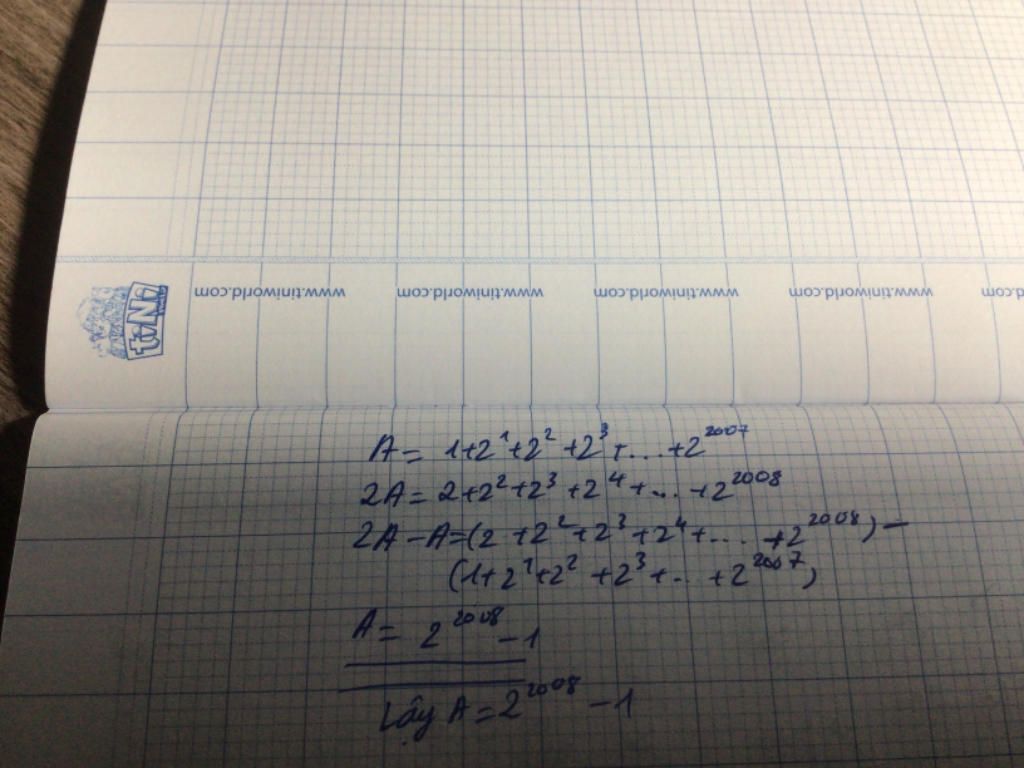 www.tiniworld.com www.tiniworld.com www.tiniworld.com www.tiniworld.com www.tiniworld.co
tiNi
A = 1+2¹+2²+2³+...+2²⁰⁰⁷
2A = 2+2²+2³+2⁴+...+2²⁰⁰⁸
2A-A=(2+2²+2³+2⁴+...+2²⁰⁰⁸)-
(1+2¹+2²+2³+...+2²⁰⁰⁷)
A= 2²⁰⁰⁸-1
Lậy A=2²⁰⁰⁸-1